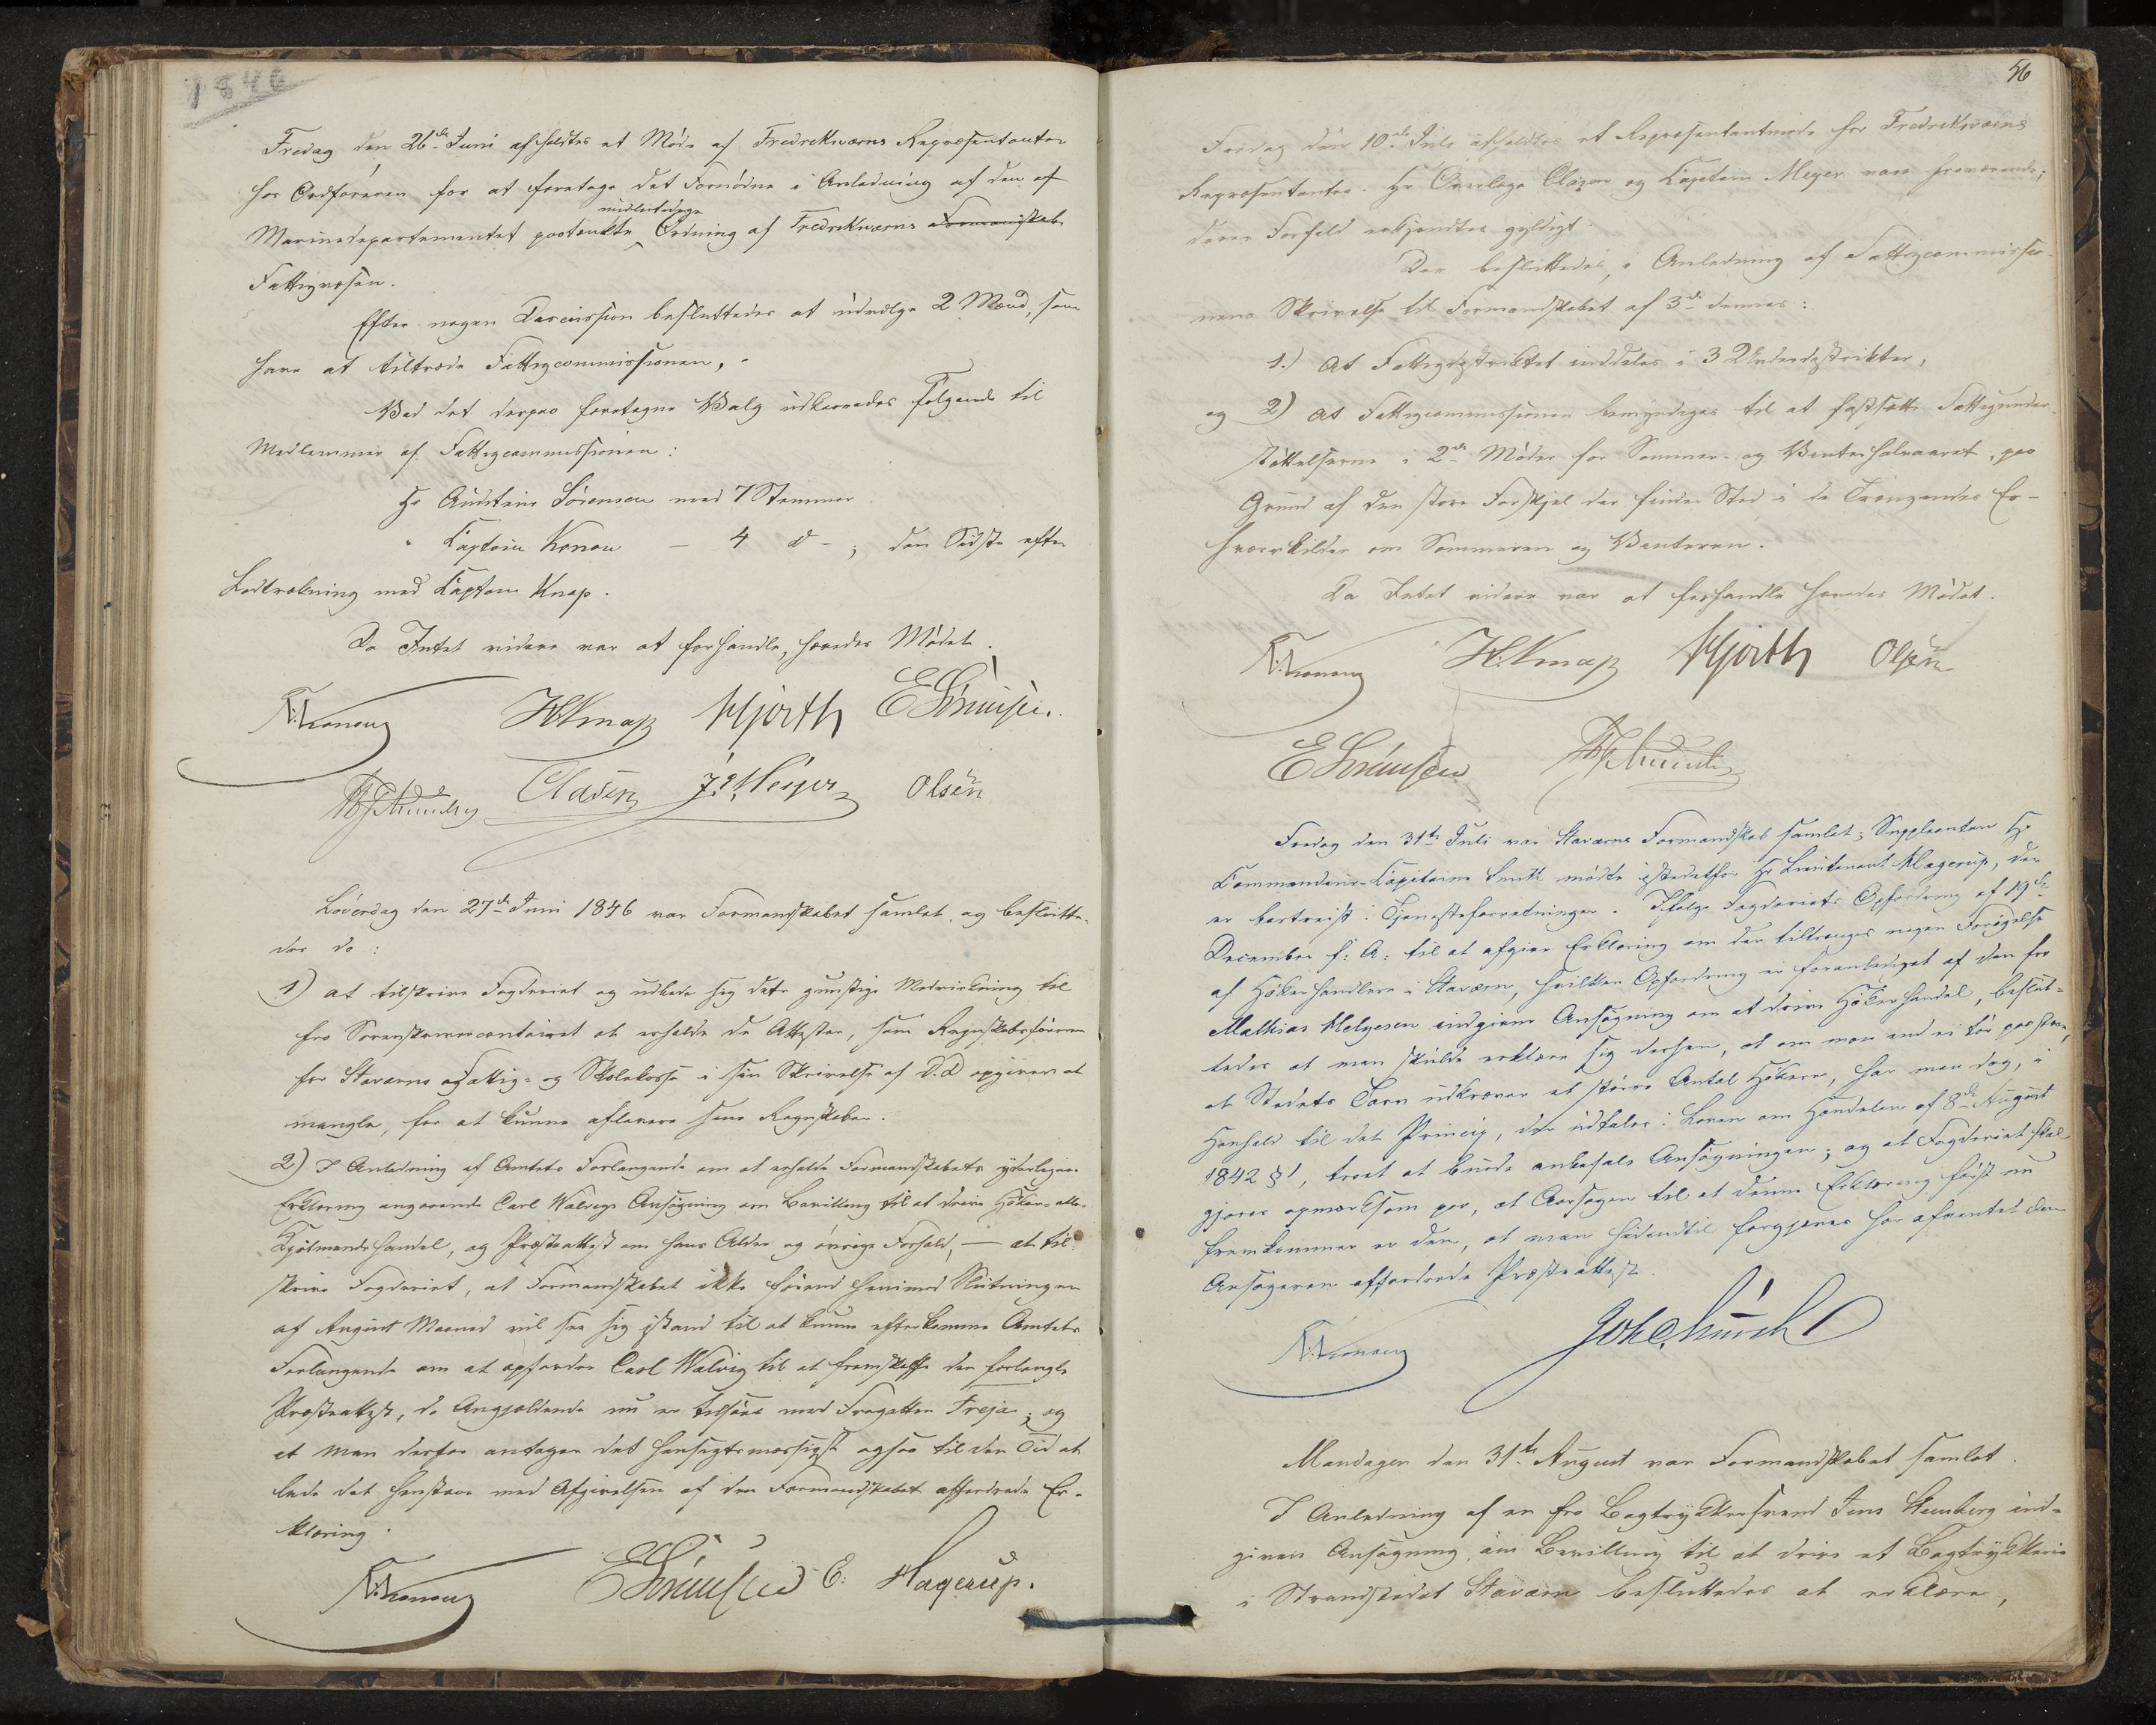 1846
Fredag den 26de Juni afholdtes et Møde af Fredriksværns Repræsentanter
hos Ordføreren for at foretage det Fornødne i Anledning af den af
midlertidige
Marinedepartementet paatænkte Ordning af Fredriksværns Formandskab
Fattigvæsen.
Efter nogen Discussion besluttedes at udvælge 2 Mænd, som
have at tiltræde Fattigcommissionen,
Ved det derpaa foretagne Valg udkaaredes følgende til
Medlemmer af Fattigcommissionen:
Hr Sørensen med 7 Stemmer
" Captain Konow — 4 d – ; den Sidste efter
Lodtrækning med Captain Knap.
Da Intet videre var at forhandle, hævedes Mødet.
Konow HKnap Hjorth ESørensen.
Clasen Meyer Olsen
Løverdag den 27de Juni 1846 var Formandskabet samlet og beslutte-
des da:
1) at tilskrive Fogderiet og udbede sig dets gunstige Medvirkning til
fra Sorenskrivercontoiret at erholde de Attester, som Regnskabsføreren
for Staværns Fattig- og Skolekasse i sin Skrivelse af D.D. opgiver at
mangle, for at kunne aflevere sine Regnskaber.
2) I Anledning af Amtets Forlangende om at erholde Formandskabets yderligere
Erklæring angaaende Carl Walvigs Ansøgning om Bevilling til at drive Høker- eller
Kjøbmandshandel, og Præsteattest om hans Alder og øvrige Forhold, — at til-
skrive Fogderiet, at Formandskabet ikke førend henimod Slutningen
af August Maaned vil see sig istand til at kunne efterkomme Amtets
Forlangende om at opfordre Carl Walvig til at fremskaffe den forlangte
Præsteattest, da Angjældende nu er tilsøes med Fregatten Freja; og
at man derfor antager det hensigtsmæssigst ogsaa til den Tid at
lade det henstaae med Afgivelsen af den Formandskabet affordrede Er-
klæring.
Konow ESørensen C: Hagerup.
56
Fredag den 10de Juli afholdtes et Repræsentantmøde hos Fredriksværns
Repræsentanter. Hr Overlæge Clasen og Capitain Meyer vare fraværende;
deres Forfald erkjendtes gyldigt.
Der besluttedes, i Anledning af Fattigcommissio-
nens Skrivelse til Formandskabet af 3de dennes:
1.) At Fattigdistriktet inddeles i 3 Underdistrikter,
og 2) at Fattigcommissionen bemyndiges til at fastsætte Fattigunder-
støttelserne i 2de Møder for Sommer- og Vinterhalvaaret, paa
Grund af den store Forskjel der finder Sted i de Trængendes Er-
hvervskilder om Sommeren og Vinteren.
Da Intet videre var at forhandle hævedes Mødet.
Konow H.Knap Hjorth Olsen
ESørensen
Fredag den 31te Juli var Staværns Formandskab samlet; Suppleanten Hr
Commandeur-Capitaine Smith mødte istedetfor Hr Lieutenant Hagerup, der
er bortreist i Tjenesteforretninger. Ifølge Fogderiets Opfordring af 19de
December f: A: til at afgive Erklæring om der tiltrænges nogen Forøgelse
af Høkerhandlere i Staværn, hvilken Opfordring er foranlediget af den fra
Mathias Helgesen indgivne Ansøgning om at drive Høkerhandel, beslut-
tedes at man skulde erklære sig derhen, at om man end ei tør paastaae,
at Stedets Tarv udkræver et større Antal Høkere, har man dog, i
Henhold til det Princip, der udtales i Loven om Handelen af 8de August
1842 §1, troet at burde anbefale Ansøgningen; og at Fogderiet skal
gjøres opmærksom paa, at Aarsagen til at denne Erklæring først nu
fremkommer er den, at man hidindtil forgjæves har afventet den
Ansøgeren affordrede Præsteattest.
Konow
Mandagen den 31te August var Formandskabet samlet.
I Anledning af en fra Bogtrykkersvend Jens ind-
given Ansøgning om Bevilling til at drive et Bogtrykkerie
i Strandstedet Staværn besluttedes at erklære,